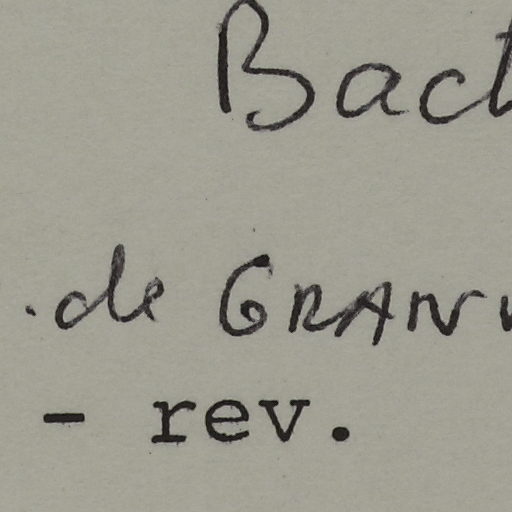 Bact
. de GRANV
- rev.